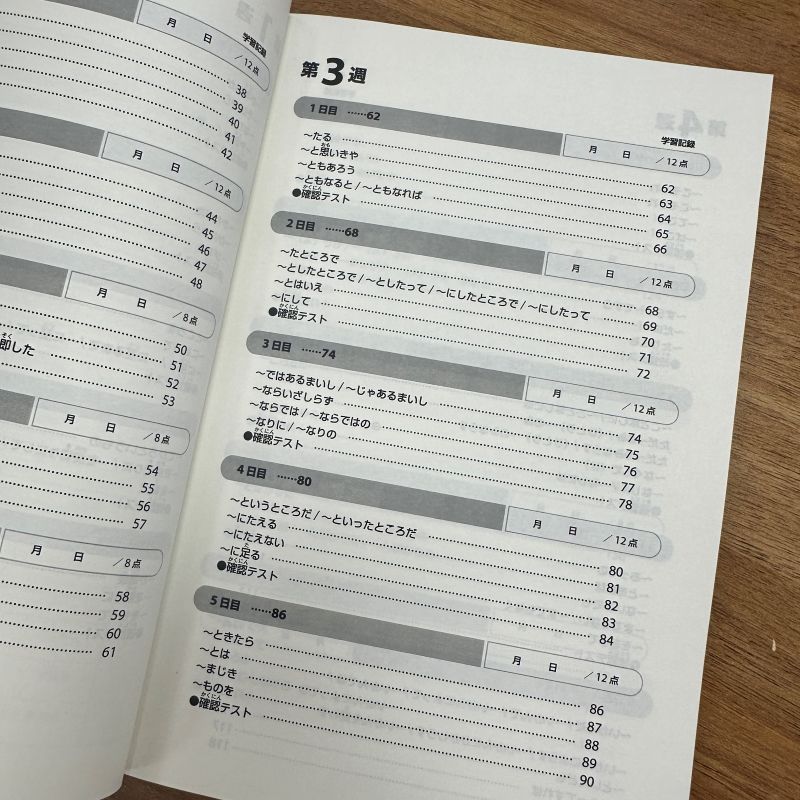 学習記録
月 日 /12点
38
39
40
41
42
月 日 /12点
44
45
46
47
48
月 日 /8点
即した
50
51
52
53
月 日 /8点
54
55
56
57
月 日 /8点
58
59
60
61
第3週
学習記録
1日目 ……62 月 日 /12点
～たる 62
～と思いきや 63
～ともあろう 64
～ともなると/～ともなれば 65
●確認テスト 66
2日目 ……68 月 日 /12点
～たところで 68
～としたところで/～としたって/～にしたところで/～にしたって 69
～とはいえ 70
～にして 71
●確認テスト 72
3日目 ……74 月 日 /12点
～ではあるまいし/～じゃあるまいし 74
～ならいざしらず 75
～ならでは/～ならではの 76
～なりに/～なりの 77
●確認テスト 78
4日目 ……80 月 日 /12点
～というところだ/～といったところだ 80
～にたえる 81
～にたえない 82
～に足る 83
●確認テスト 84
5日目 ……86 月 日 /12点
～ときたら 86
～とは 87
～まじき 88
～ものを 89
●確認テスト 90